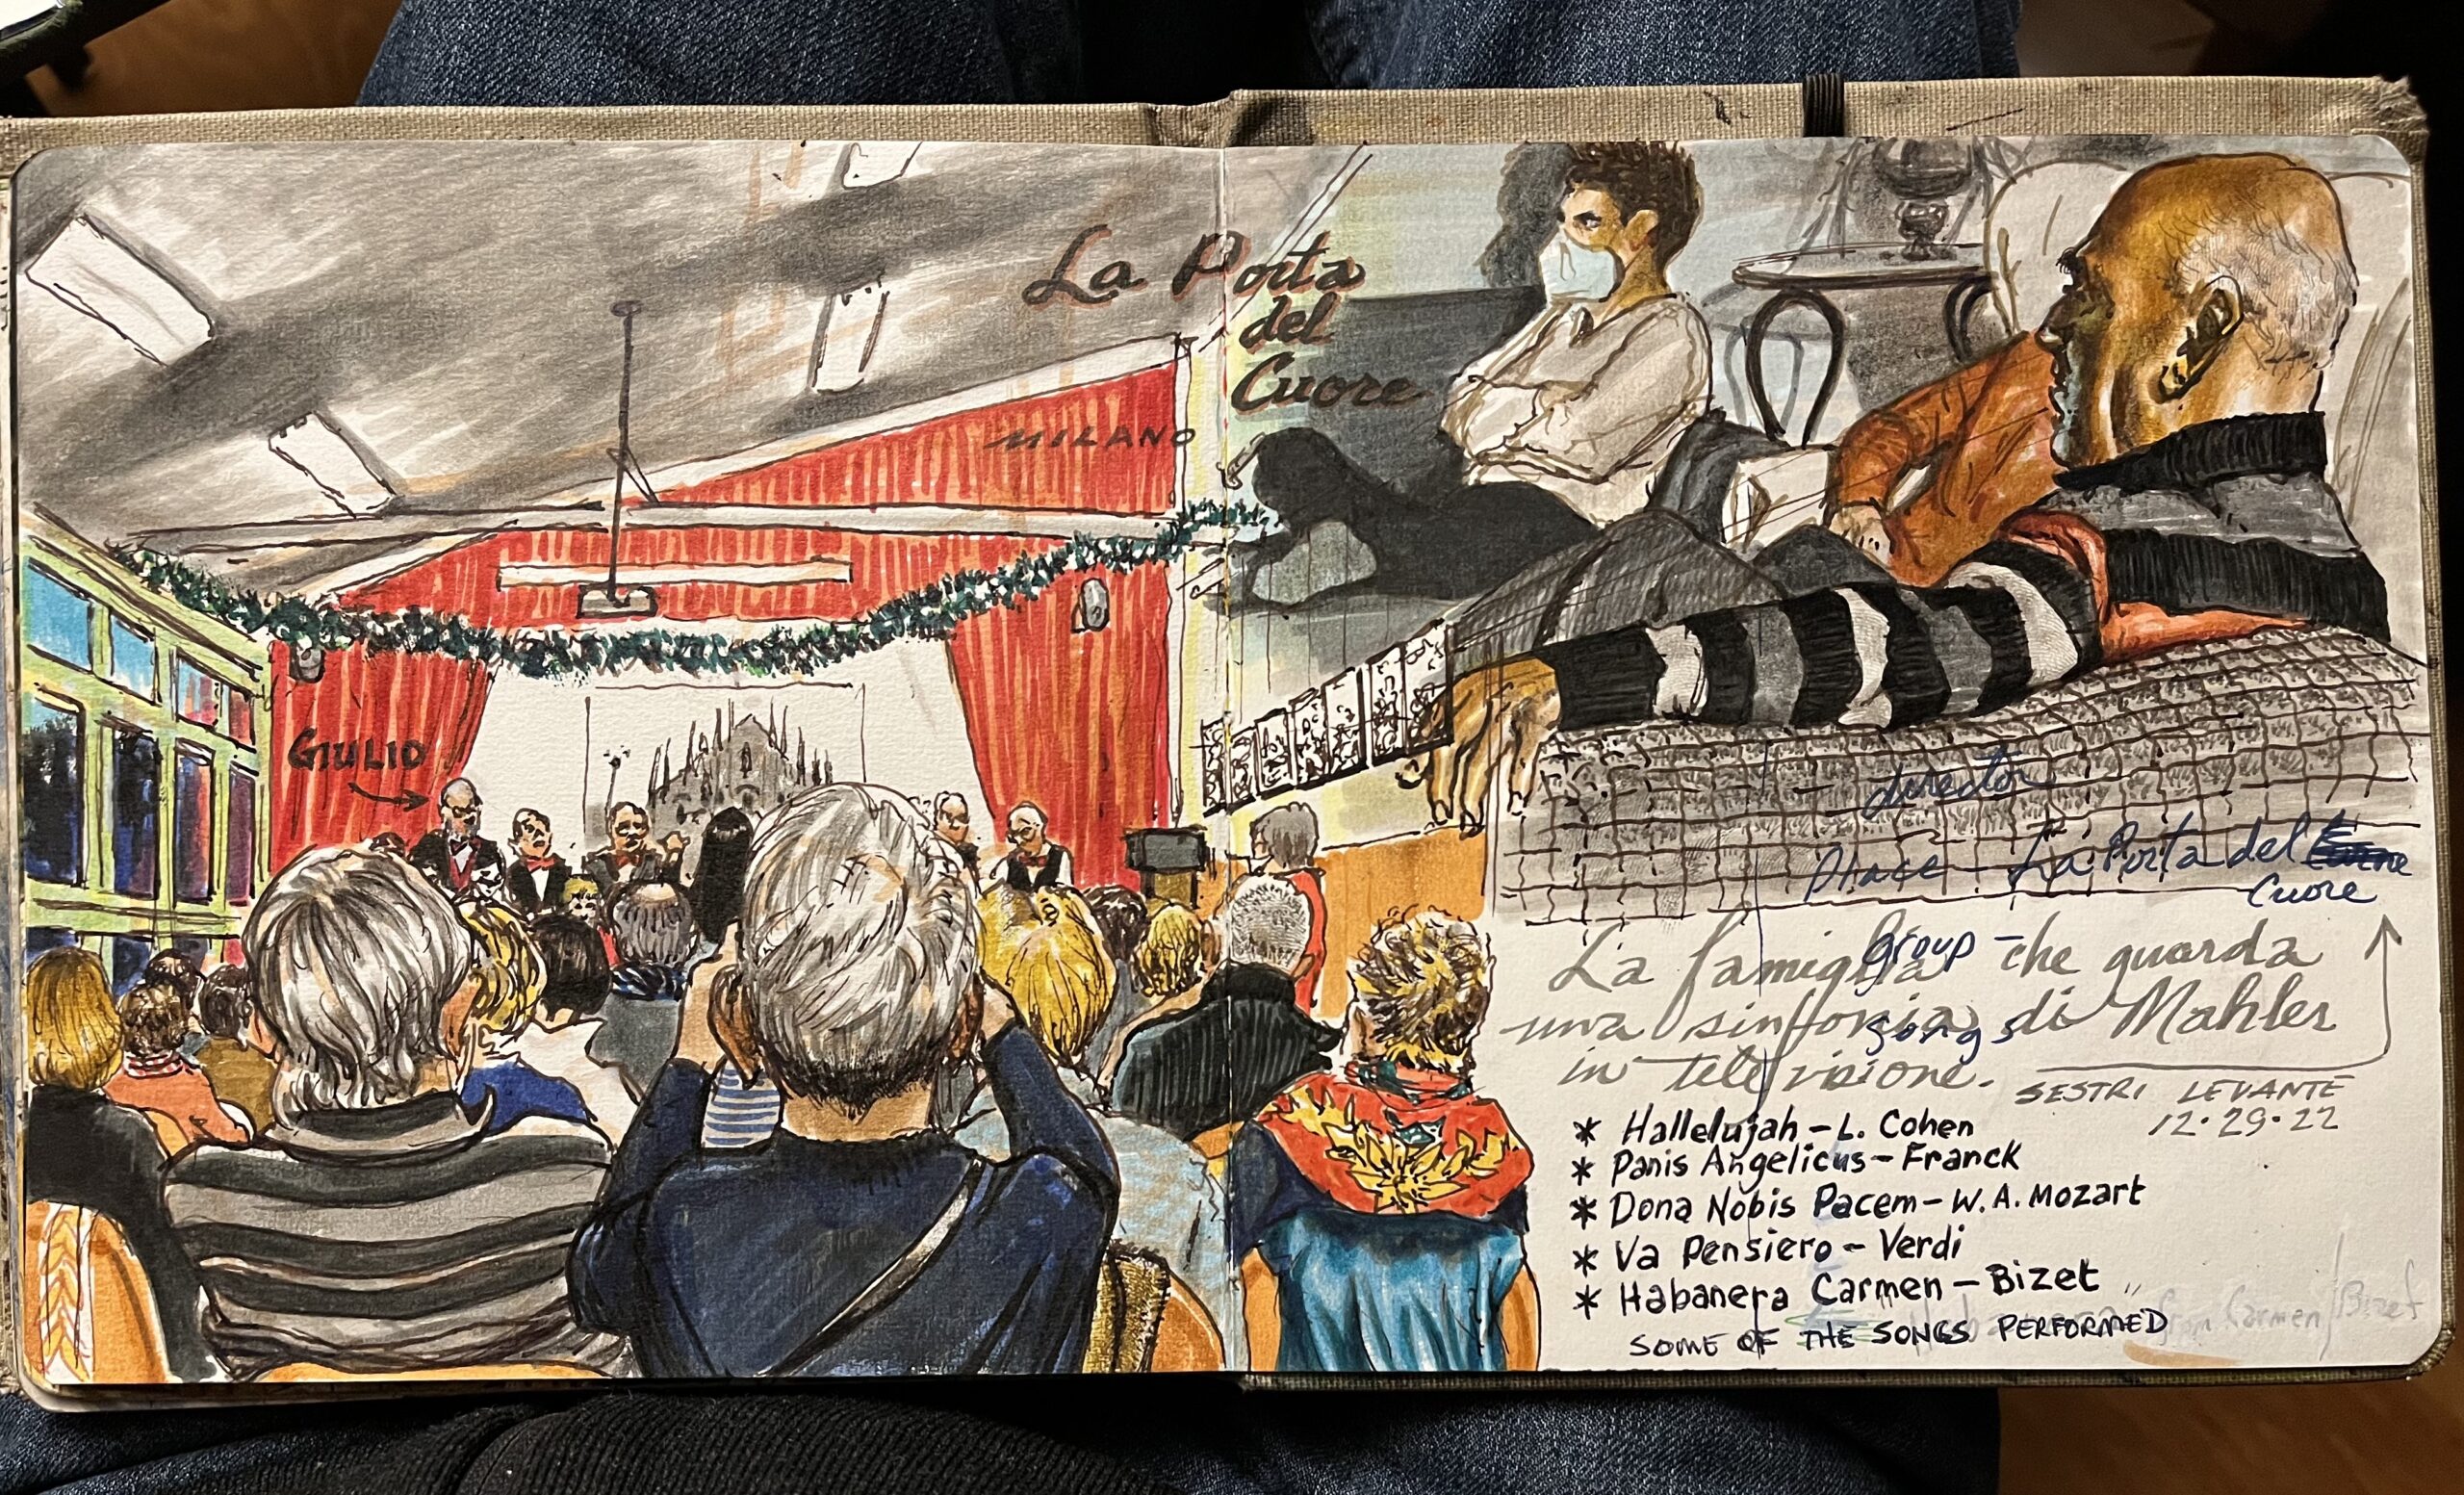 La Porta
del
Cuore
MILANO
GIULIO
director
Place - La Porta del
Cuore
Group -
songs
La famiglia che guarda
una sinfonia di Mahler
in televisione.
SESTRI LEVANTE
12·29·22
* Hallelujah - L. Cohen
* Panis Angelicus - Franck
* Dona Nobis Pacem - W. A. Mozart
* Va Pensiero - Verdi
* Habanera Carmen - Bizet
from Carmen / Bizet
SOME OF THE SONGS PERFORMED